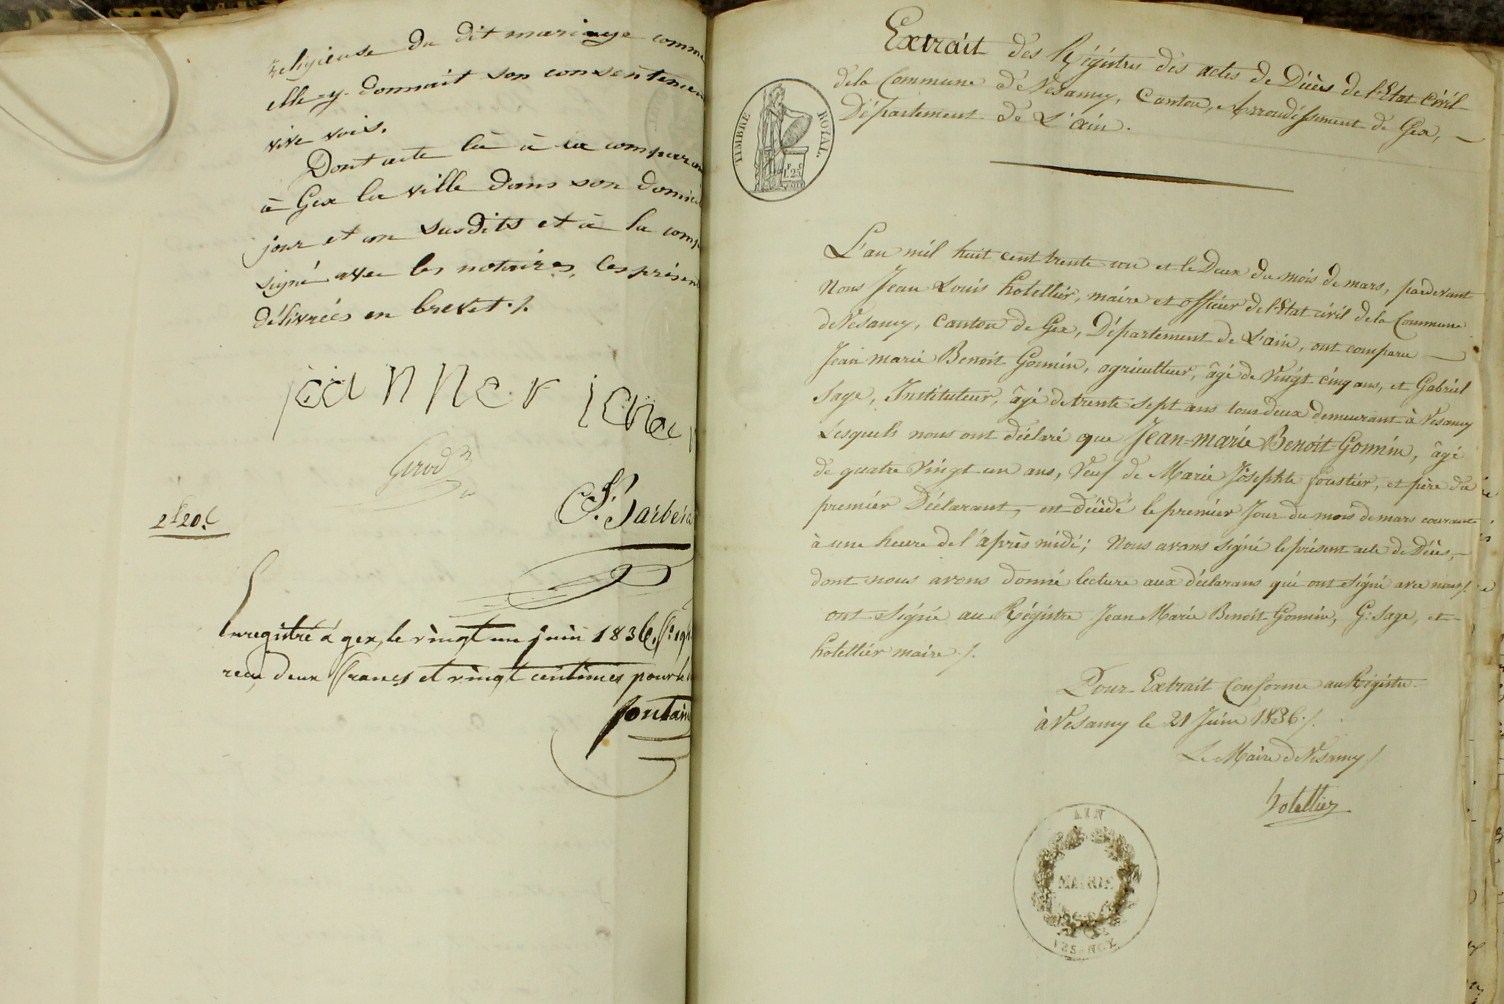 religieuse du dit mariage comme
elle-y-donnait son consentemen
vive voix.
Dont acte là à la compara
à Gex la ville dans son domici
jour et an susdits et à la comp
signé avec les notaires, les présen
délivrées en brevet ./.
Girod
2f20c
Enregistré à gex, le vingt un juin 1836,
recu deux francs et vingt centimes pour
fontain
Extrait des Régistres des actes de Décès de l'Etat civil
de la Commune de Vesancy, Canton, Arrondissement de Gex,
Département de L'ain.
TIMBRE ROYAL
L'an mil huit cent trente un et le Deux du mois de mars, pardevant
Nous Jean Louis hotellier, maire et officier de l'Etat civil de la Commune
de Vesancy, Canton de Gex, Département de L'ain, ont comparu
Jean marie Benoit Gonnin, agriculteur, âgé de vingt cinq ans, et Gabriel
Sage, Instituteur, âgé de trente sept ans tous deux demeurant à Vesancy
Lesquels nous ont déclaré que Jean=marie Benoit Gonnin, âgé
de quatre vingt un ans, Veuf de Marie Josephte foustier, et père du
premier Déclarant, est décédé le premier Jour du mois de mars courant
à une heure de l'après midi; Nous avons signé le présent acte de Décès,
dont nous avons donné lecture aux déclarans qui ont signé avec nous/.
ont signé au Régistre Jean Marie Benoit Gonnin, G. Sage, et
hotellier maire ./.
Pour Extrait Conforme au Régistre
à Vesancy le 21 Juin 1836 ./.
Le Maire de Vesancy
hotellier
AIN
MAIRIE
VESANCY